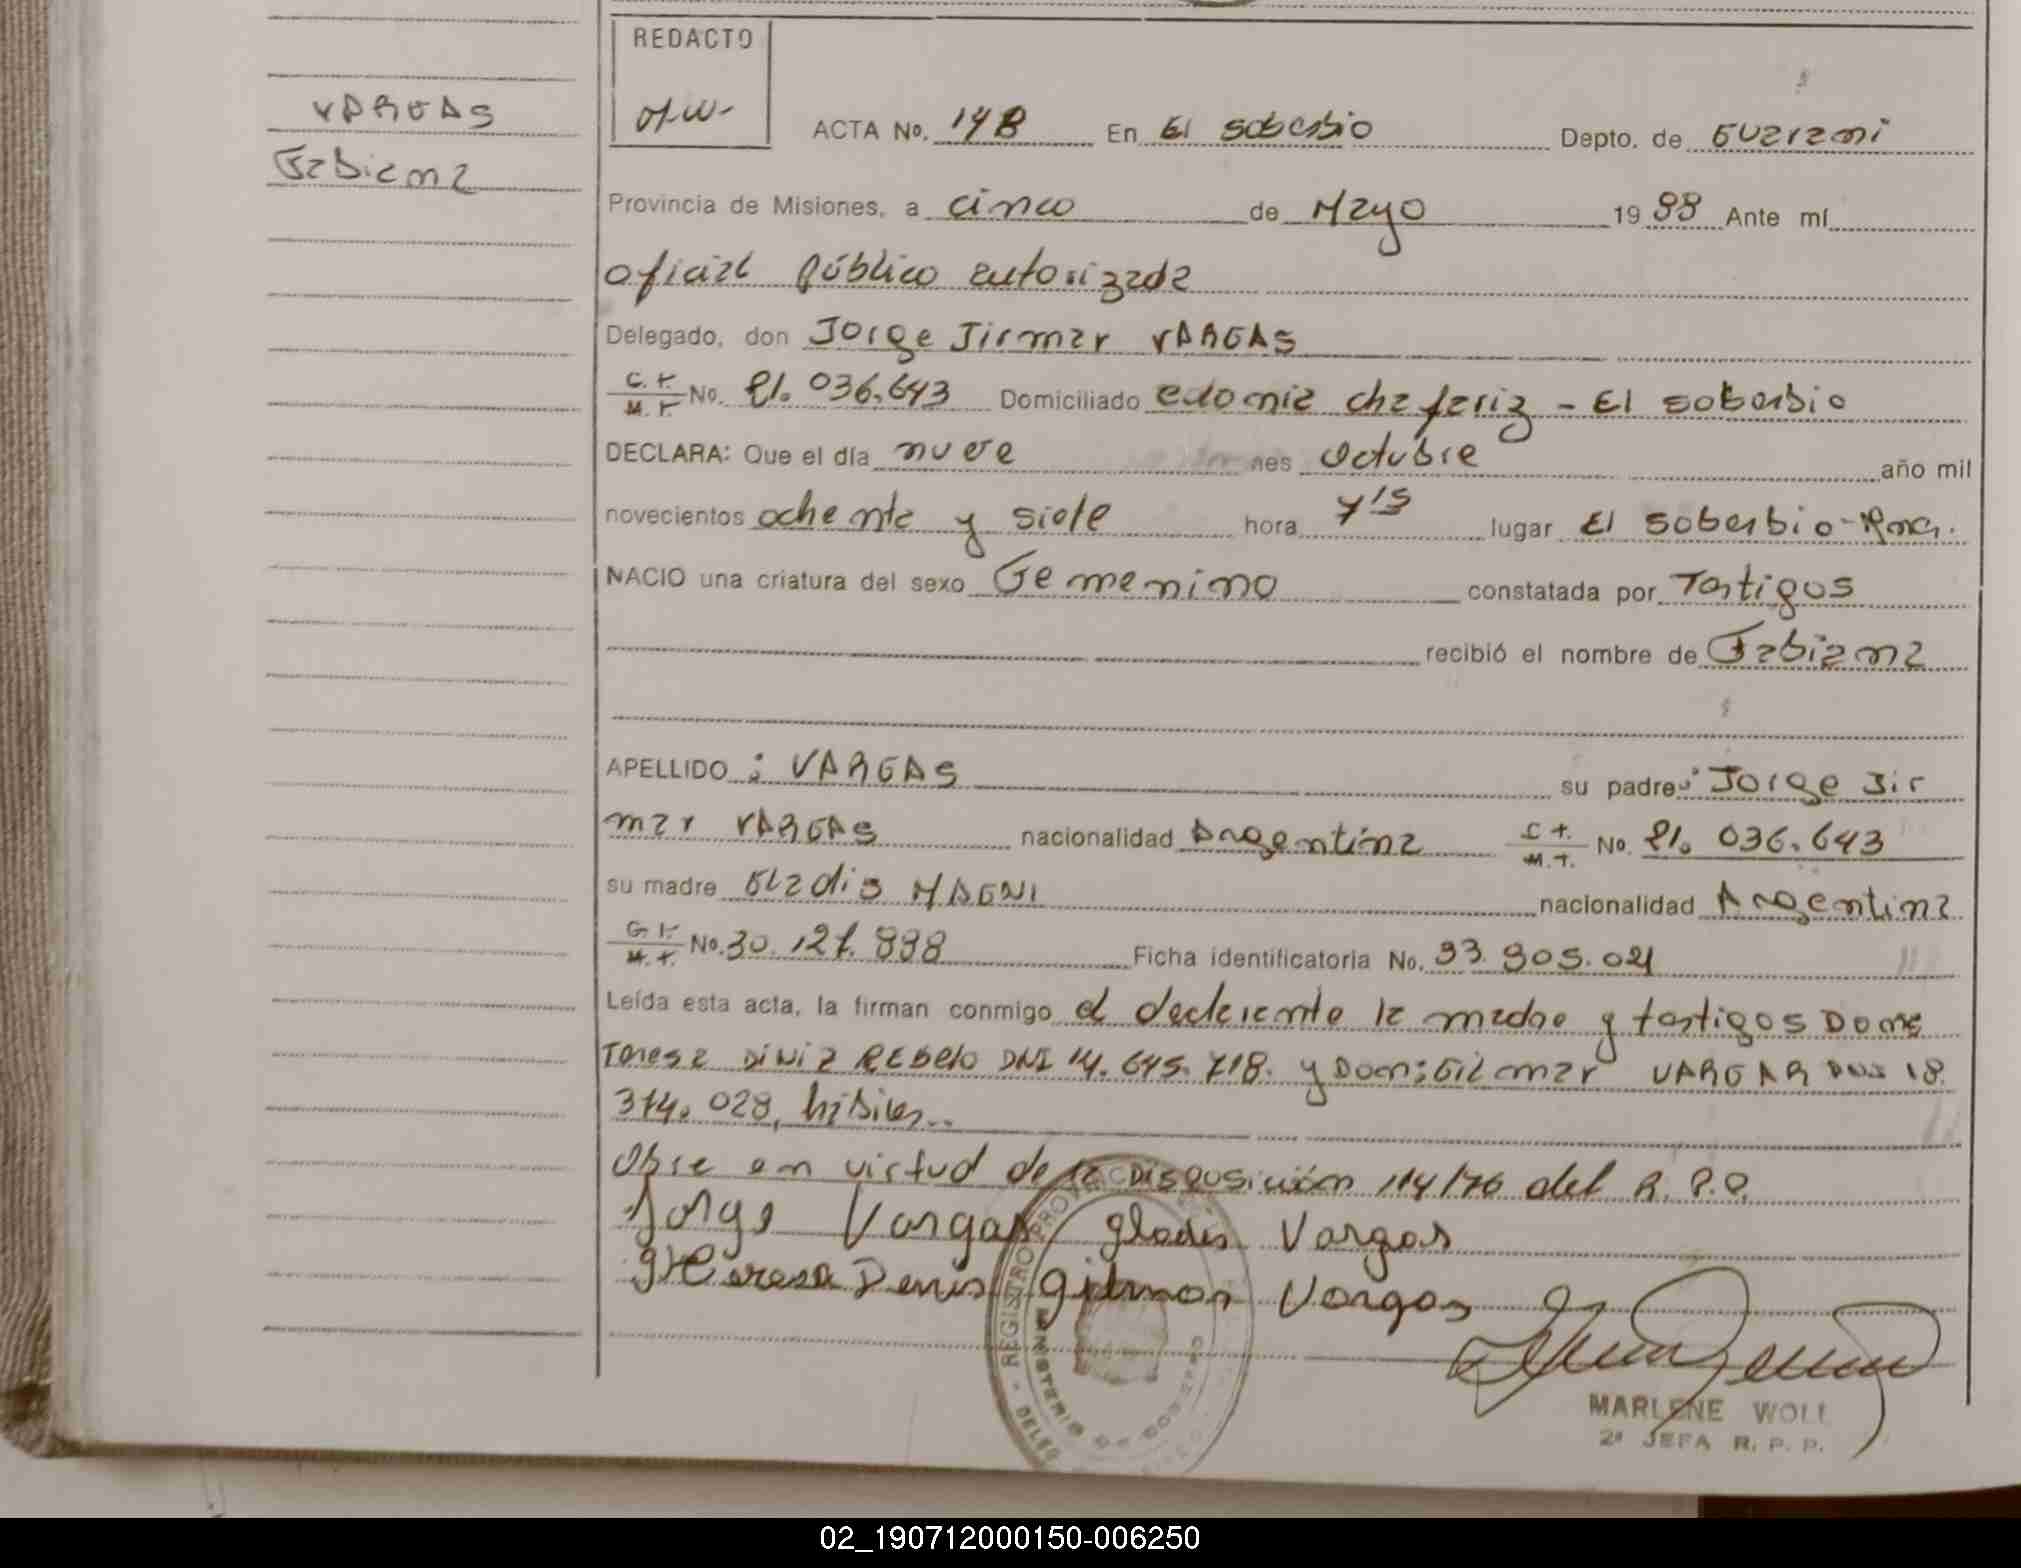 REDACTO
VARGAS
Fabiana
ACTA No. 148 En El Soberbio Depto. de Guarani
Provincia de Misiones, a cinco de Mayo 1988 Ante mí
oficial público autorizada
Delegado, don Jorge Jirmar VARGAS
No. 21.036.643 Domiciliado colonia chafariz - El soberbio
DECLARA: Que el día nueve mes Octubre año mil
novecientos ochenta y siete hora 7'15 lugar El soberbio-
NACIO una criatura del sexo Femenino constatada por Testigos
recibió el nombre de Fabiana
APELLIDO : VARGAS su padre: Jorge Jir
mar VARGAS nacionalidad Argentina C.I. M.I. No. 21.036.643
su madre Gladis MAGNI nacionalidad Argentina
No. 30.127.888 Ficha identificatoria No. 93.905.021
Leída esta acta, la firman conmigo el declarante la madre y testigos Doña
Teresa DINIZ REBELO DNI 14.645.718. y Don: Gilmar VARGAS DNI 18.
374.028, hábiles..
Obra en virtud de la Disposición 114/76 del R.P.P.
Jorge Vargas Gladis Vargas
Teresa Denis Gilmar Vargas
REGISTRO PROVINCIAL
MINISTERIO DE GOBIERNO
MARLENE WOLL
2ª JEFA R. P. P.
02_190712000150-006250